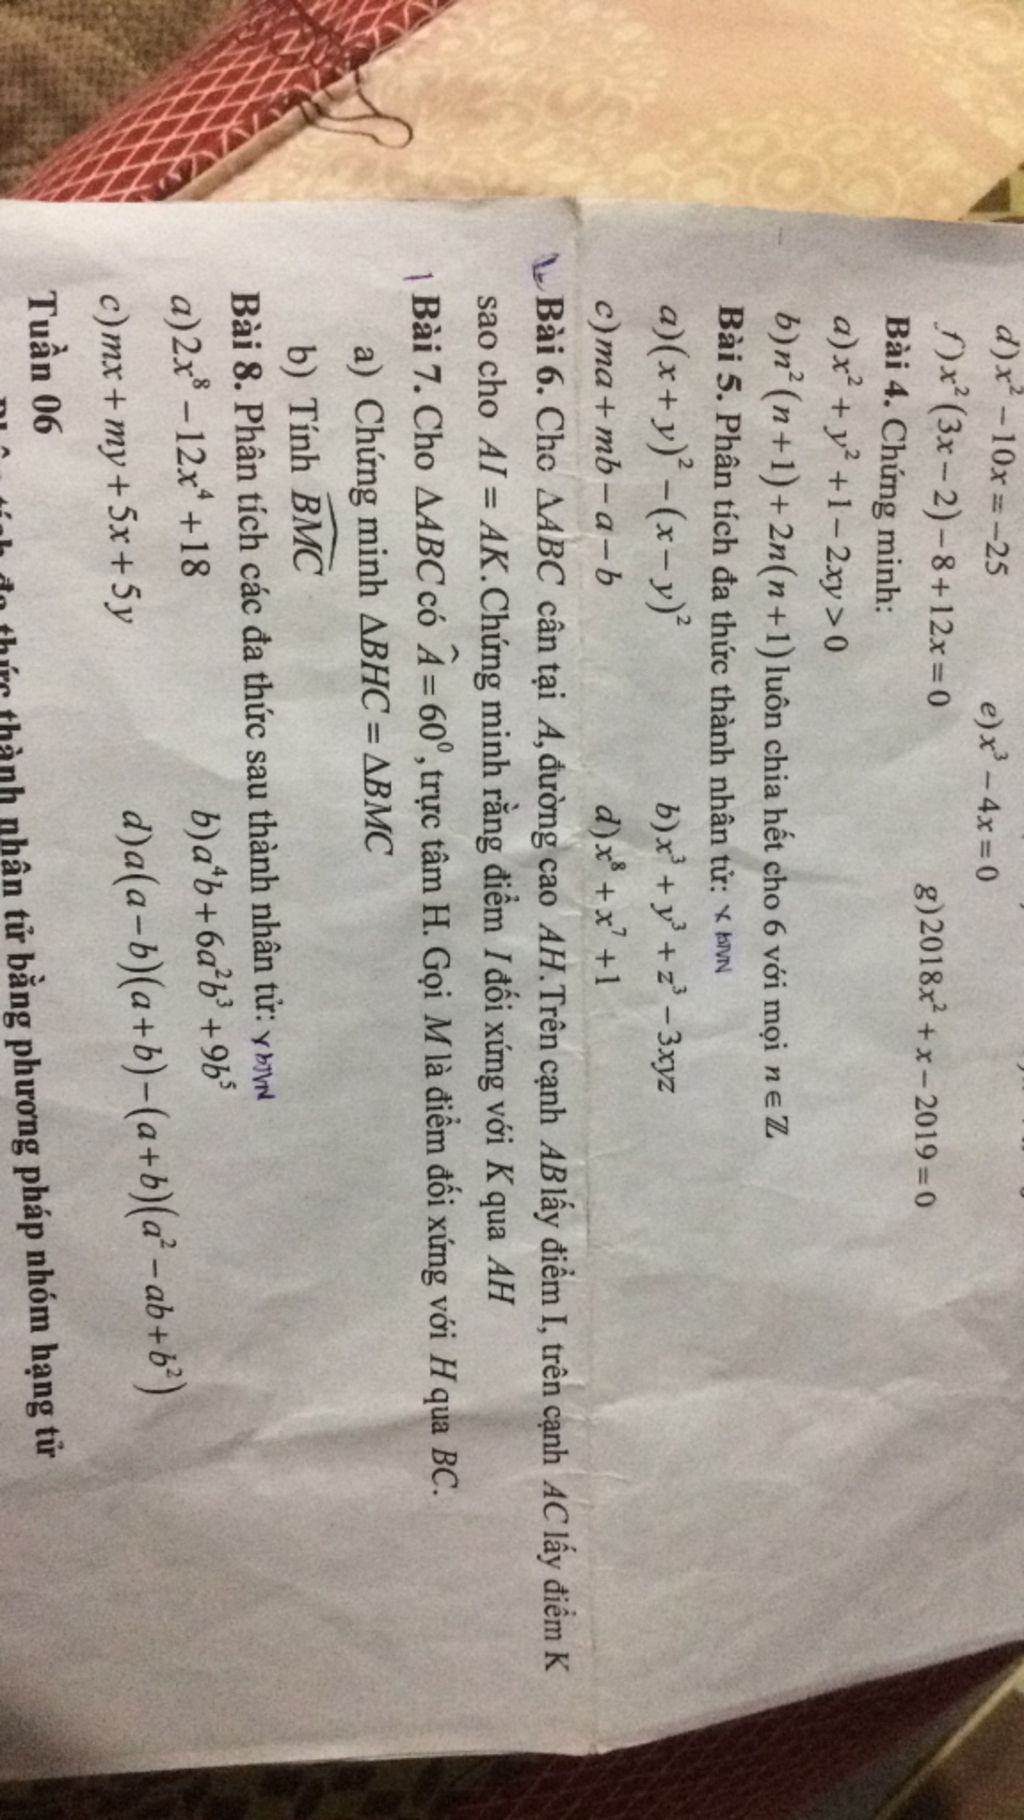 d) x² − 10x = −25
e) x³ − 4x = 0
f) x²(3x − 2) − 8 + 12x = 0
g) 2018x² + x − 2019 = 0
Bài 4. Chứng minh:
a) x² + y² + 1 − 2xy > 0
b) n²(n + 1) + 2n(n + 1) luôn chia hết cho 6 với mọi n ∈ ℤ
Bài 5. Phân tích đa thức thành nhân tử: x BTVN
a) (x + y)² − (x − y)²
b) x³ + y³ + z³ − 3xyz
c) ma + mb − a − b
d) x⁸ + x⁷ + 1
Bài 6. Cho ΔABC cân tại A, đường cao AH. Trên cạnh AB lấy điểm I, trên cạnh AC lấy điểm K
sao cho AI = AK. Chứng minh rằng điểm I đối xứng với K qua AH
Bài 7. Cho ΔABC có Â = 60⁰, trực tâm H. Gọi M là điểm đối xứng với H qua BC.
a) Chứng minh ΔBHC = ΔBMC
b) Tính B͡MC
Bài 8. Phân tích các đa thức sau thành nhân tử: x BTVN
a) 2x⁸ − 12x⁴ + 18
b) a⁴b + 6a²b³ + 9b⁵
c) mx + my + 5x + 5y
d) a(a − b)(a + b) − (a + b)(a² − ab + b²)
Tuần 06
thức thành nhân tử bằng phương pháp nhóm hạng tử